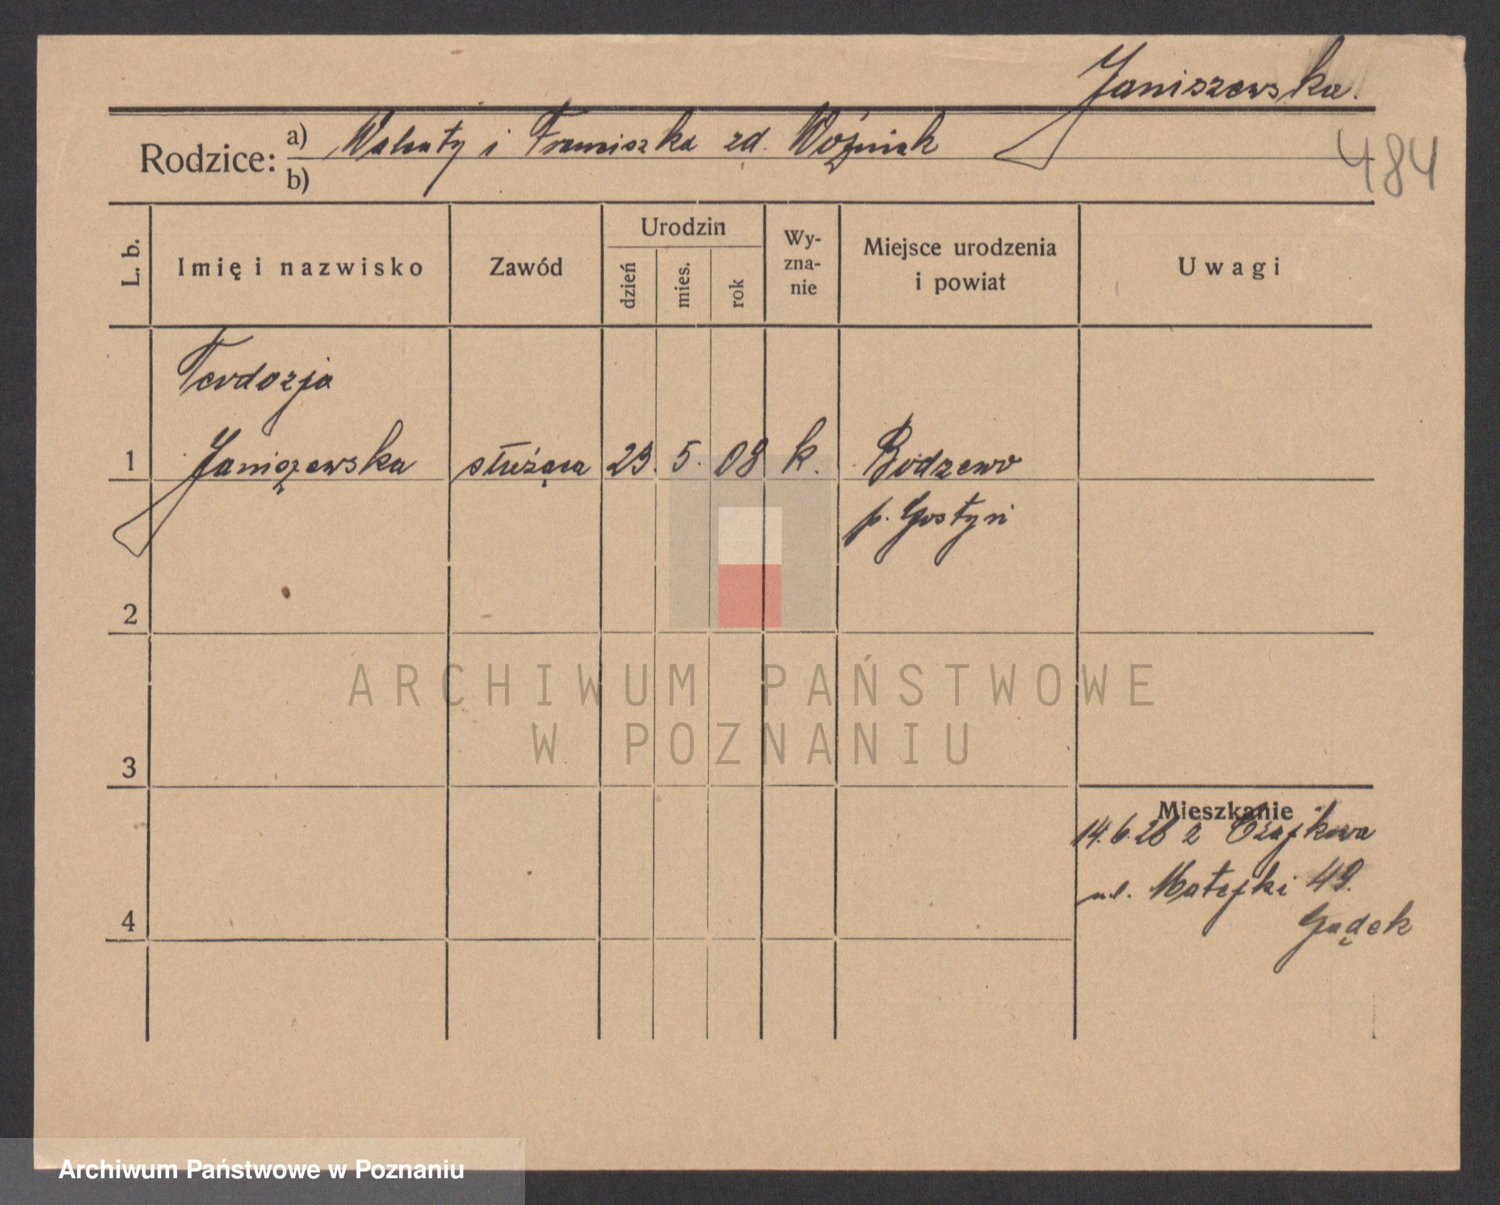 Janiszewska.
Rodzice: a) Walenty i Franciszka zd. Woźniak
b)
484
L. b.
Imię i nazwisko
Zawód
Urodzin
dzień
mies.
rok
Wy-
zna-
nie
Miejsce urodzenia
i powiat
Uwagi
Teodozja
1 Janiszewska służąca 23. 5. 08 k. Bodzewo
p. Gostyń
2
3
4
Mieszkanie
14.6.28 z Czajkowa
ul. Matejki 49.
Gądek
ARCHIWUM PAŃSTWOWE
W POZNANIU
Archiwum Państwowe w Poznaniu